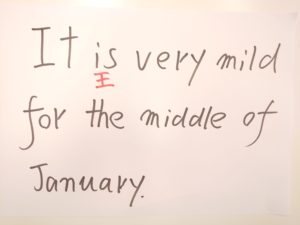 It is very mild
王
for the middle of
January.